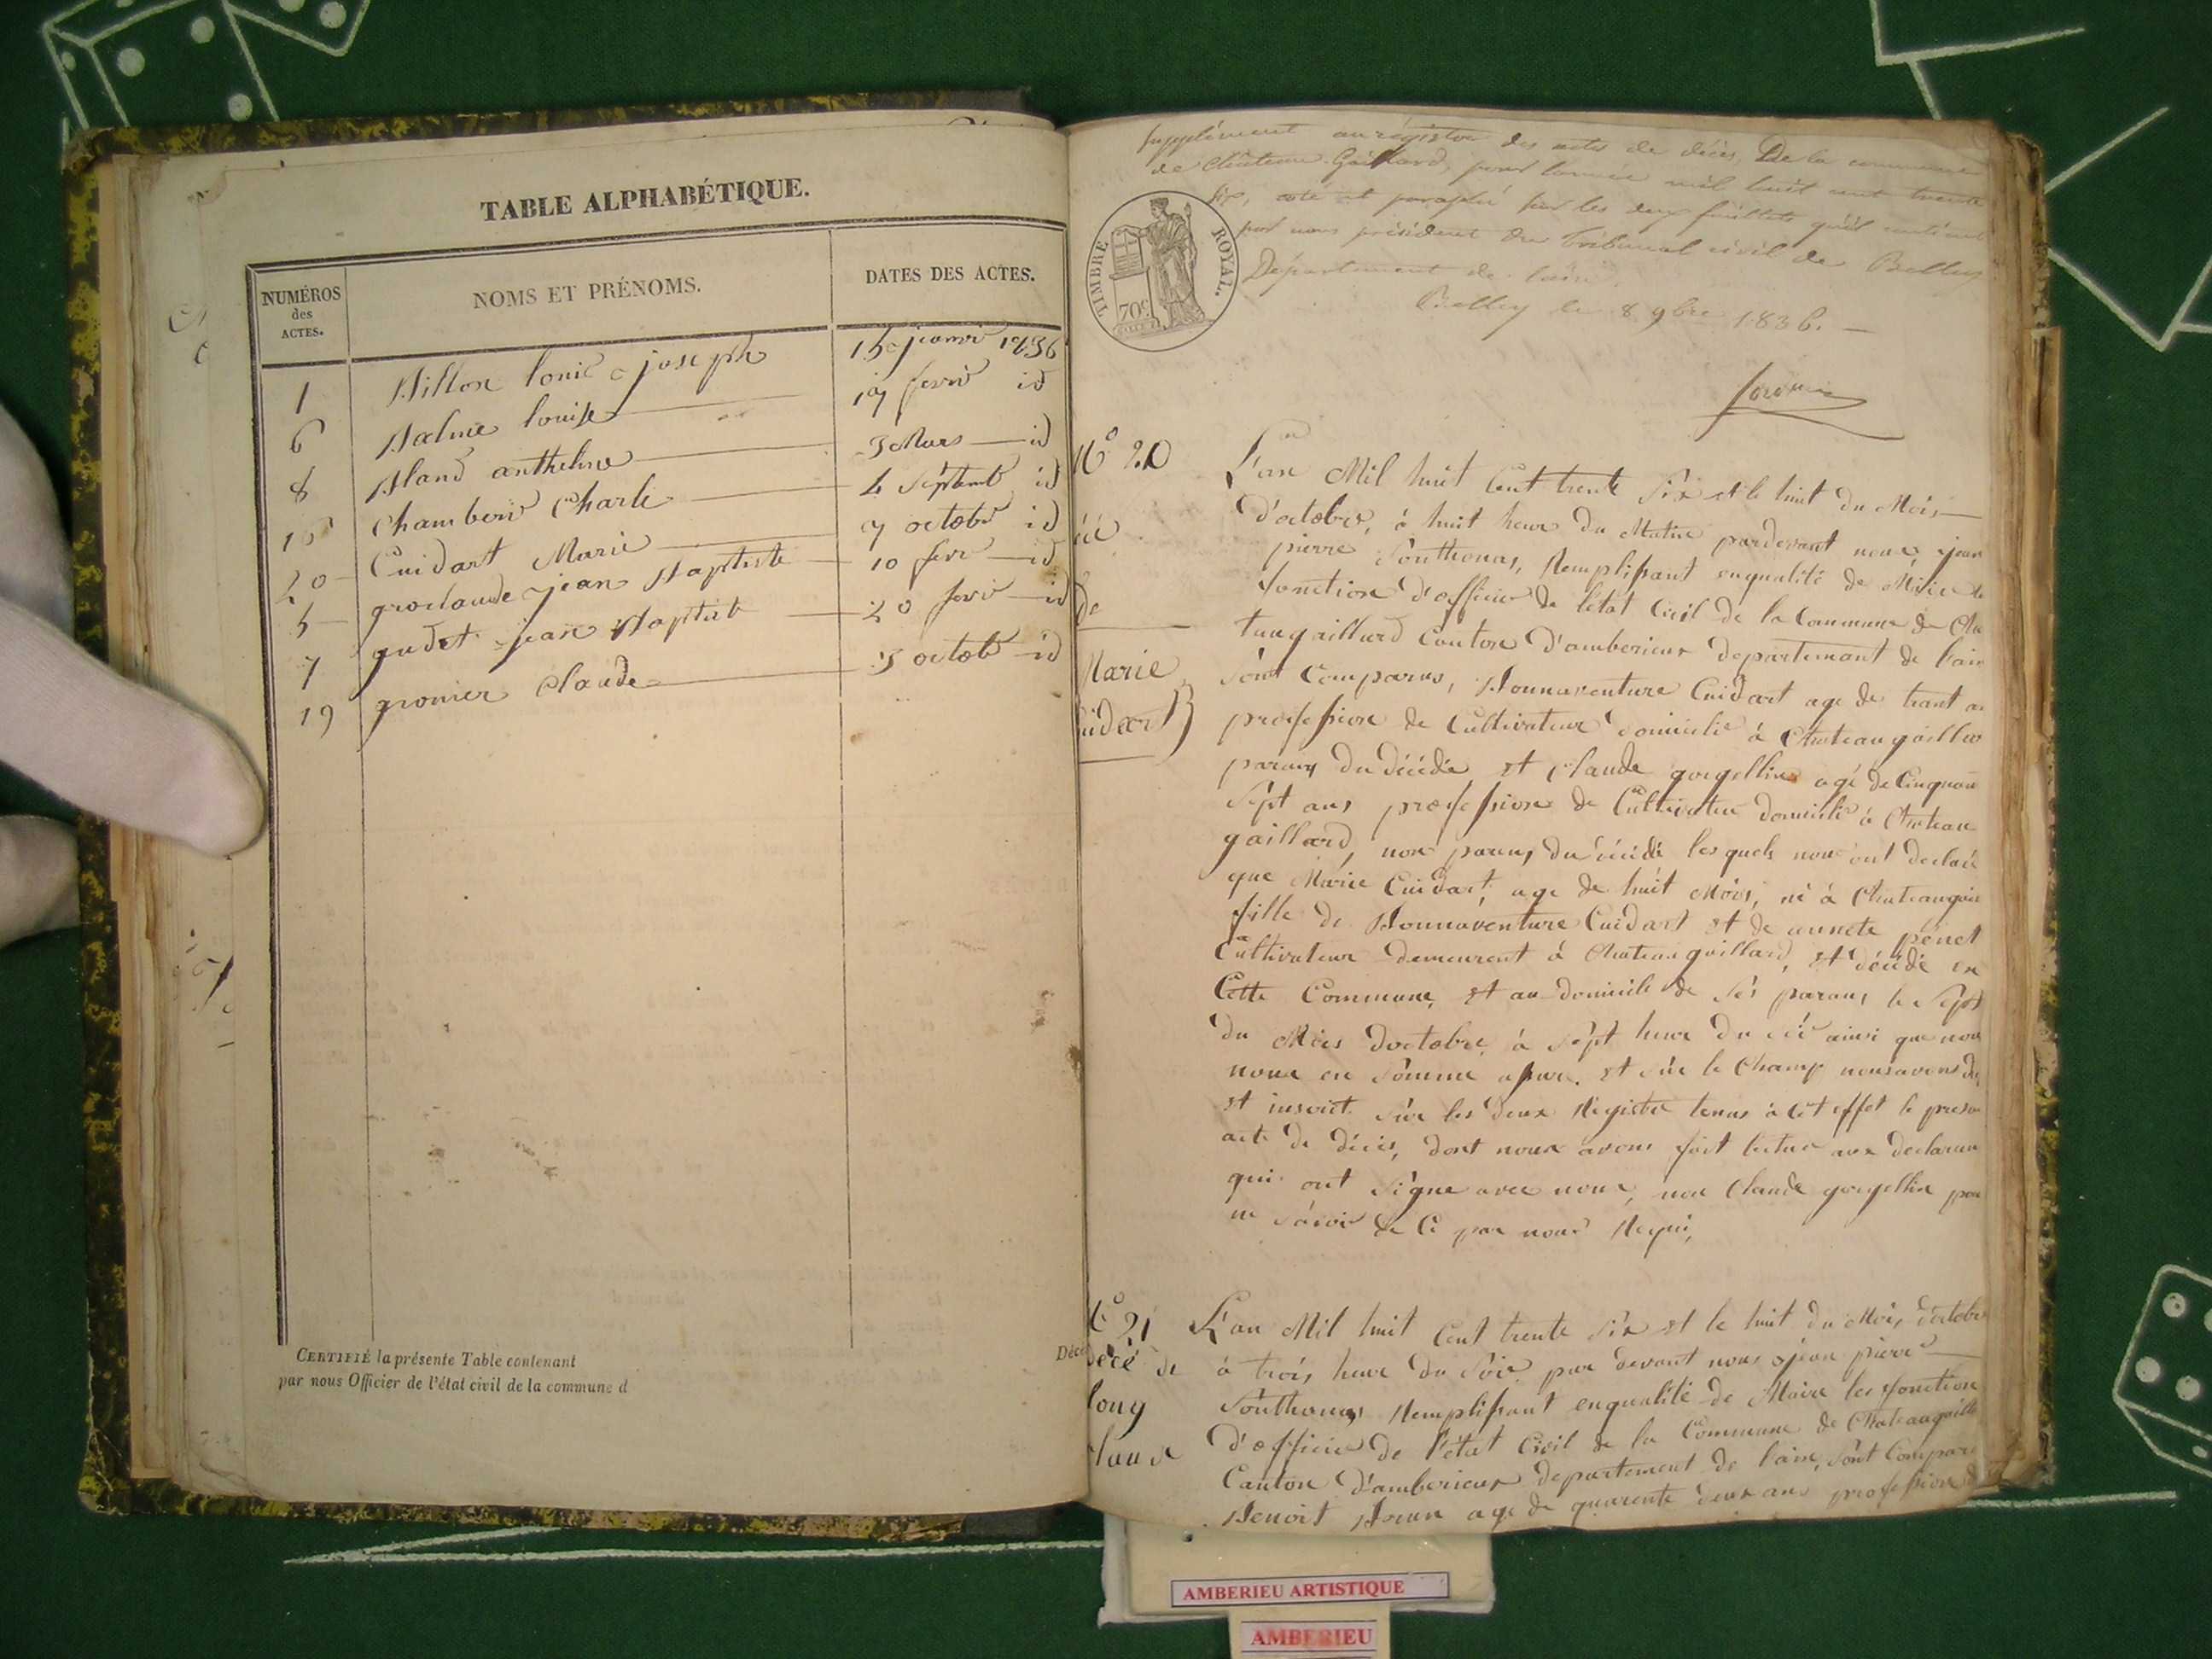 TABLE ALPHABÉTIQUE.
NUMÉROS
des
ACTES.
NOMS ET PRÉNOMS.
DATES DES ACTES.
1 Billon louis joseph 15 janvie 1836
6 Balme louise 19 fevrie id
8 Bland anthelme 3 Mars id
16 Chamberd Charle 4 Septemb id
20 Cuidart Marie 9 octobr id
5 groclaude jean Baptiste 10 fevr id
7 gudet jean Baptist 20 fevr id
19 gronier claude 3 octob id
CERTIFIÉ la présente Table contenant
par nous Officier de l'état civil de la commune d
Supplément au registre des actes de décès, De la commune
de Château-Gaillard, pour l'année mil huit cent trente
six, coté et paraphé sur les deux feuillets qu'il contient
par nous président du tribunal civil de Belley
Département de l'ain.
Belley le 8 9bre 1836.
TIMBRE ROYAL.
70c
No 20
de
Marie
uidart
L'an Mil huit Cent trente Six et le huit du Mois
d'octobre, à huit heur du Matin pardevant nous jean
pierre Southonas, Remplissant enqualité de Maire le
fonction d'officier de letat Civil de la Commune de Cha
taugaillard Canton d'amberieux departemant de l'ain
Sont Comparus, Bonnaventure Cuidart age de trant an
profession de Cultivateur domicilié à Chateaugaillar
parans du décédé et Claude gougellin agé de Cinquan
Sept ans profession de Cultivateur domicilié à Chateau
gaillard, non parans du décédé lesquels nous ont declaré
que Marie Cuidart, age de huit Mois, né à Chateaugai
fille de Bonnaventure Cuidart et de annete penet
Cultivateur demeurent à Chateaugaillard, et décédé en
Cette Commune, et au domicile de Sés parans le Sépt
du Mois doctobre, à Sépt heur du ainsi que nou
nous en Somme assure. et Sur le Champ nous avons
et inscrit Sur les deux Registre tenus à cet effet le presen
acte de décès, dont nous avons fait lectur aux declaran
qui ont Signe avec nous, non Claude gougellin pou
ne Savoir de Ce par nous Requi,
No 21
décé de
long
claud
L'an Mil huit Cent trente Six et le huit du Mois d'octobr
à trois heur du Soir par devant nous jean pierre
Southonas Remplissant enqualité de Maire les fonction
d'officier de l'état Civil de la Commune de Chateaugaill
Canton d'amberieux departement de lain, Sont Compar
Benoit Brun age de quarente deux ans profession d
AMBERIEU ARTISTIQUE
AMBERIEU